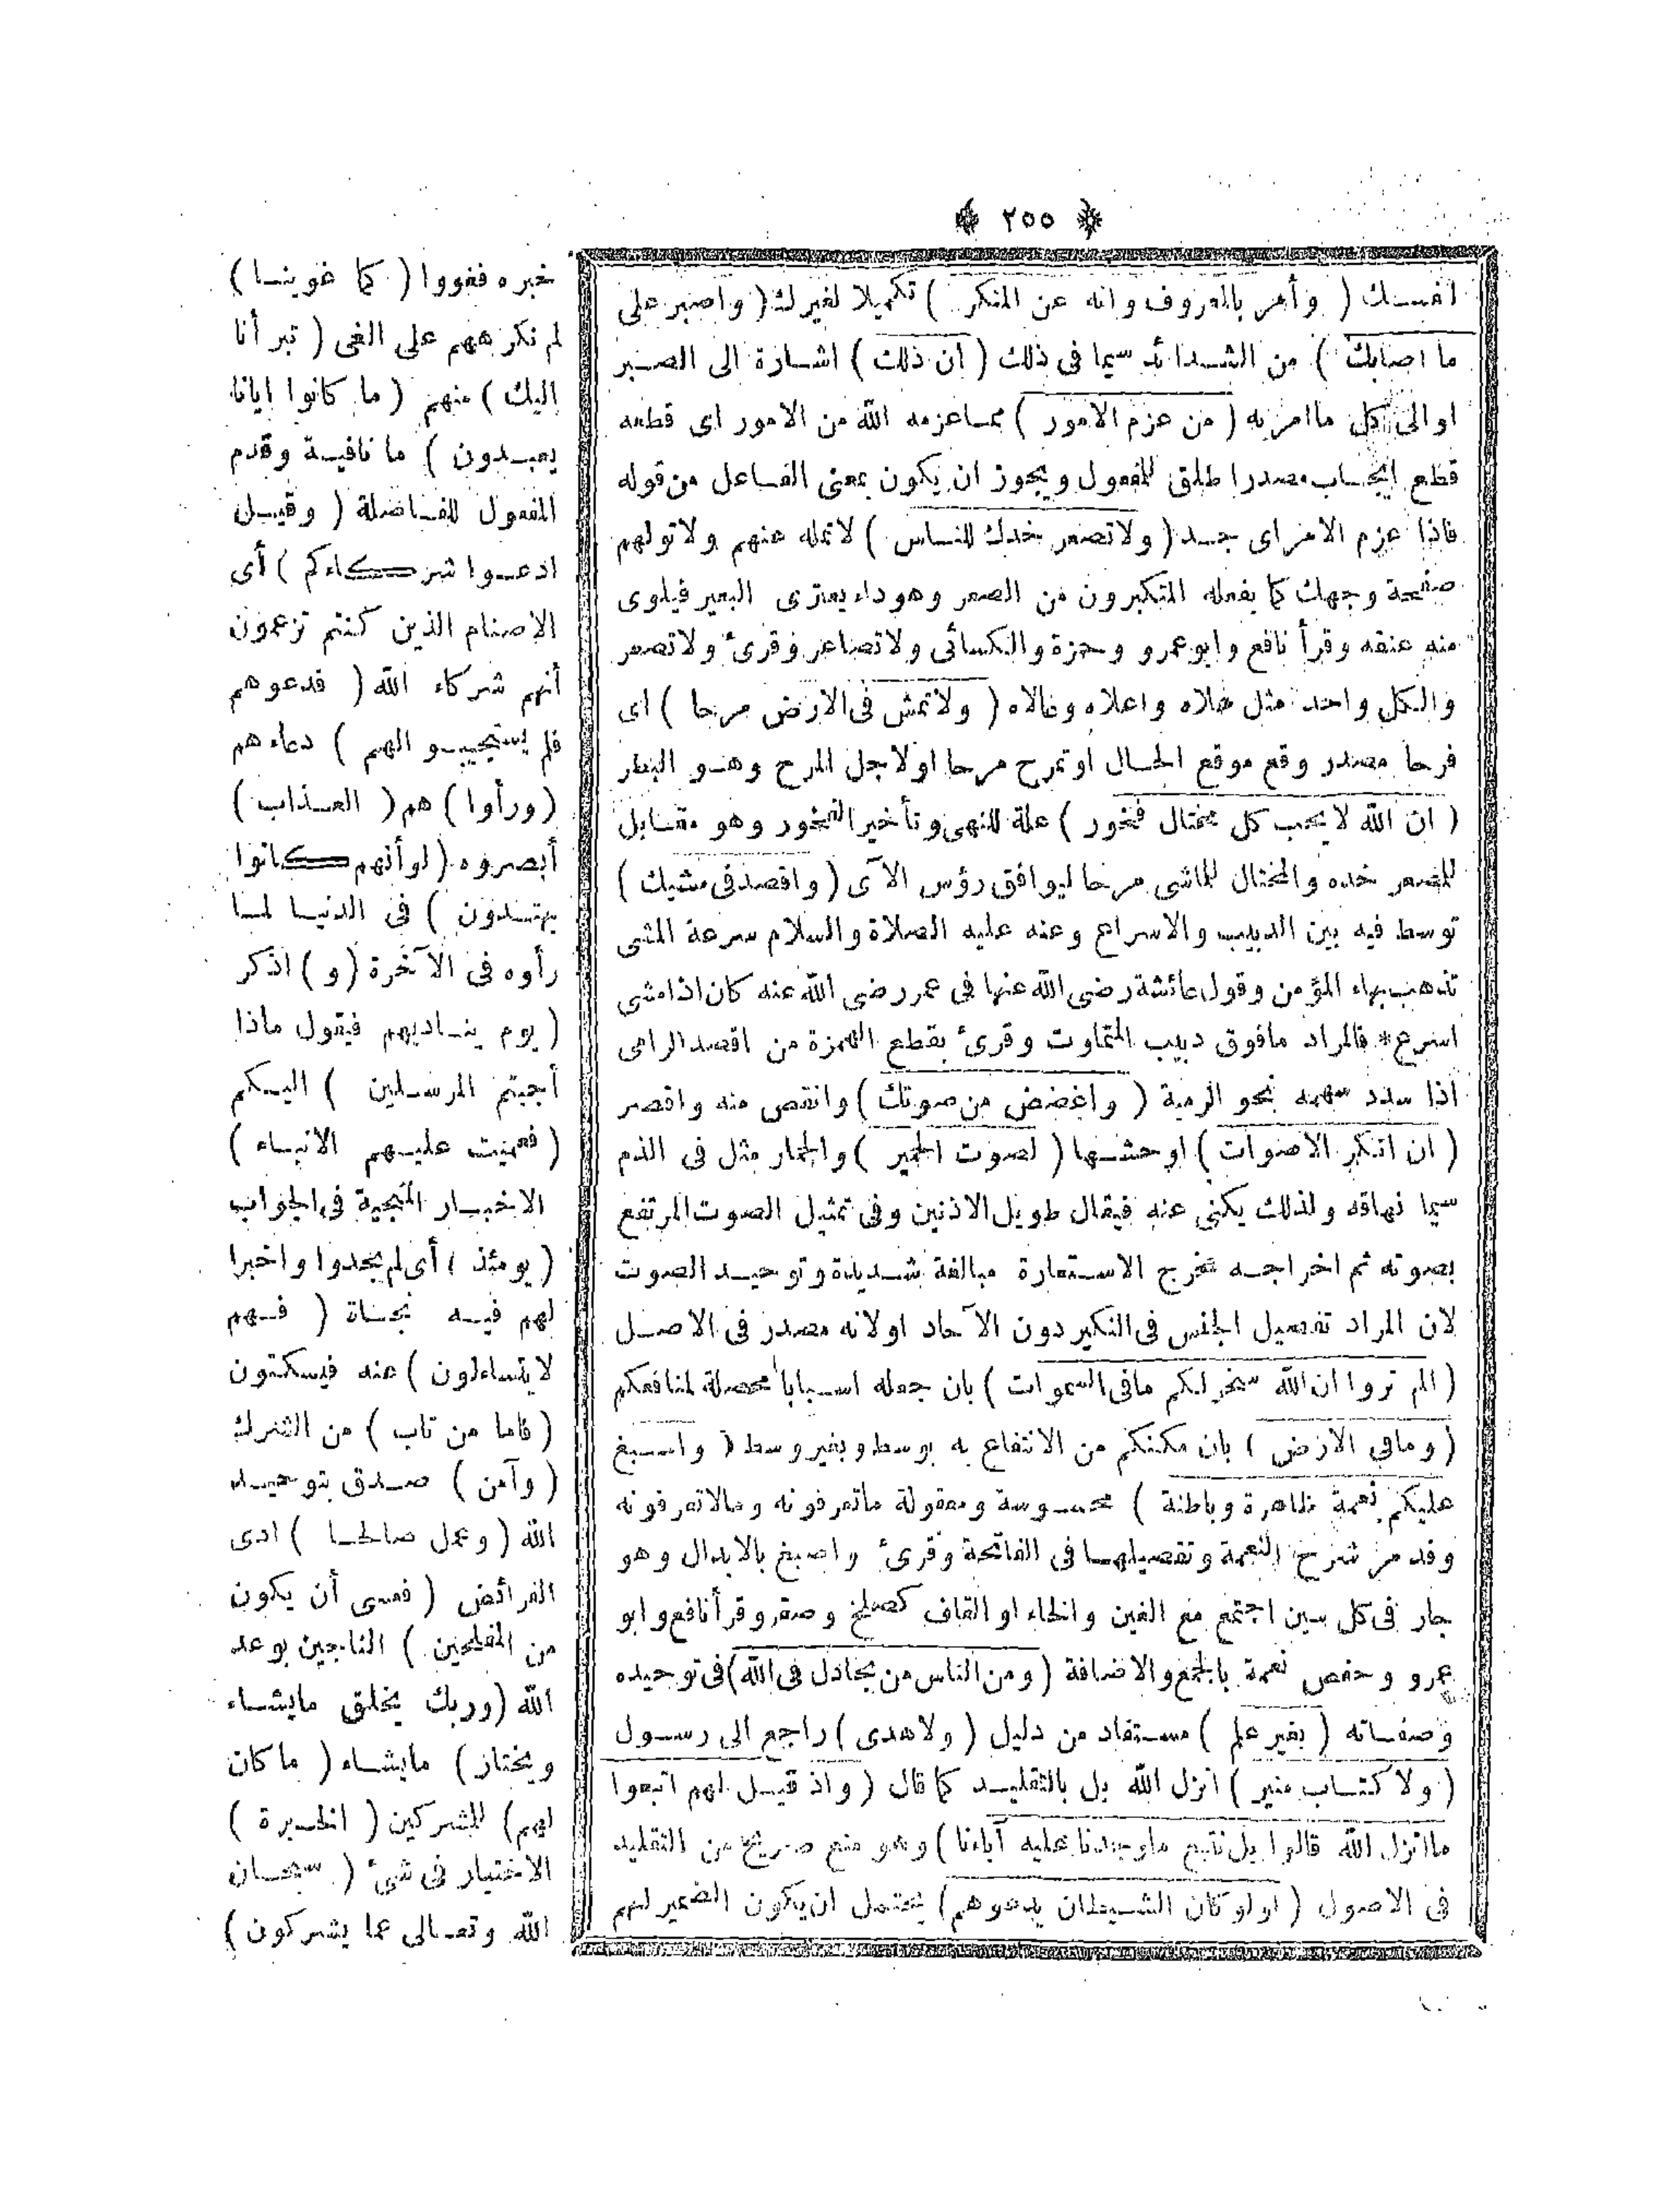 ﴿ ٢٥٥ ﴾
لنفسك ( وأمر بالمعروف وانه عن المنكر ) تكميلا لغيرك ( واصبر على
ما اصابك ) من الشدائد سيما فى ذلك ( ان ذلك ) اشارة الى الصبر
او الى كل ما امر به ( من عزم الامور ) مما عزمه الله من الامور اى قطعه
قطع ايجاب مصدر اطلق للمفعول ويجوز ان يكون بمعنى الفاعل من قوله
فاذا عزم الامر اى جد ( ولا تصعر خدك للناس ) لا تمله عنهم ولا تولهم
صفحة وجهك كما يفعله المتكبرون من الصعر وهو داء يعترى البعير فيلوى
منه عنقه وقرأ نافع وابو عمرو وحمزة والكسائى ولا تصاعر وقرئ ولا تصعر
والكل واحد مثل علاه واعلاه وعالاه ( ولا تمش فى الارض مرحا ) اى
فرحا مصدر وقع موقع الحال او تمرح مرحا او لاجل المرح وهو البطر
( ان الله لا يحب كل مختال فخور ) علة للنهى وتأخير الفخور وهو مقابل
للمصعر خده والمختال للماشى مرحا ليوافق رؤس الآى ( واقصد فى مشيك )
توسط فيه بين الدبيب والاسراع وعنه عليه الصلاة والسلام سرعة المشى
تذهب بهاء المؤمن وقول عائشة رضى الله عنها فى عمر رضى الله عنه كان اذا مشى
اسرع * فالمراد ما فوق دبيب المتماوت وقرئ بقطع الهمزة من اقصد الرامى
اذا سدد سهمه نحو الرمية ( واغضض من صوتك ) وانقص منه واقصر
( ان انكر الاصوات ) اوحشها ( لصوت الحمير ) والحمار مثل فى الذم
سيما نهاقه ولذلك يكنى عنه فيقال طويل الاذنين وفى تمثيل الصوت المرتفع
بصوته ثم اخراجه مخرج الاستعارة مبالغة شديدة وتوحيد الصوت
لان المراد تفضيل الجنس فى النكير دون الآحاد او لانه مصدر فى الاصل
( الم تروا ان الله سخر لكم ما فى السموات ) بان جعله اسبابا محصلة لمنافعكم
( وما فى الارض ) بان مكنكم من الانتفاع به بوسط وبغير وسط ( واسبغ
عليكم نعمة ظاهرة وباطنة ) محسوسة ومعقولة ما تعرفونه وما لا تعرفونه
وقد مر شرح النعمة وتفصيلها فى الفاتحة وقرئ واصبغ بالابدال وهو
جار فى كل سين اجتمع مع الغين والخاء او القاف كصلخ وصقر وقرأ نافع وابو
عمرو وحفص نعمة بالجمع والاضافة ( ومن الناس من يجادل فى الله ) فى توحيده
وصفاته ( بغير علم ) مستفاد من دليل ( ولا هدى ) راجع الى رسول
( ولا كتاب منير ) انزل الله بل بالتقليد كما قال ( واذ قيل لهم اتبعوا
ما انزل الله قالوا بل نتبع ما وجدنا عليه آباءنا ) وهو منع صريح من التقليد
فى الاصول ( او لو كان الشيطان يدعوهم ) يحتمل ان يكون الضمير لهم
خبره فغووا ( كما غوينا )
لم نكرههم على الغى ( تبرأنا
اليك ) منهم ( ما كانوا ايانا
يعبدون ) ما نافية وقدم
المفعول للفاصلة ( وقيل
ادعوا شركاءكم ) أى
الاصنام الذين كنتم تزعمون
أنهم شركاء الله ( فدعوهم
فلم يستجيبو الهم ) دعاءهم
( ورأوا ) هم ( العذاب )
أبصروه ( لو أنهم كانوا
يهتدون ) فى الدنيا لما
رأوه فى الآخرة ( و ) اذكر
( يوم يناديهم فيقول ماذا
أجبتم المرسلين ) اليكم
( فعميت عليهم الانباء )
الاخبار المنجية فى الجواب
( يومئذ ) أى لم يجدوا واخبرا
لهم فيه نجاة ( فهم
لا يتساءلون ) عنه فيسكتون
( فاما من تاب ) من الشرك
( وآمن ) صدق بتوحيد
الله ( وعمل صالحا ) ادى
الفرائض ( فعسى أن يكون
من المفلحين ) الناجين بوعد
الله ( وربك يخلق ما يشاء
ويختار ) ما يشاء ( ما كان
لهم ) للمشركين ( الخيرة )
الاختيار فى شئ ( سبحان
الله وتعالى عما يشركون )